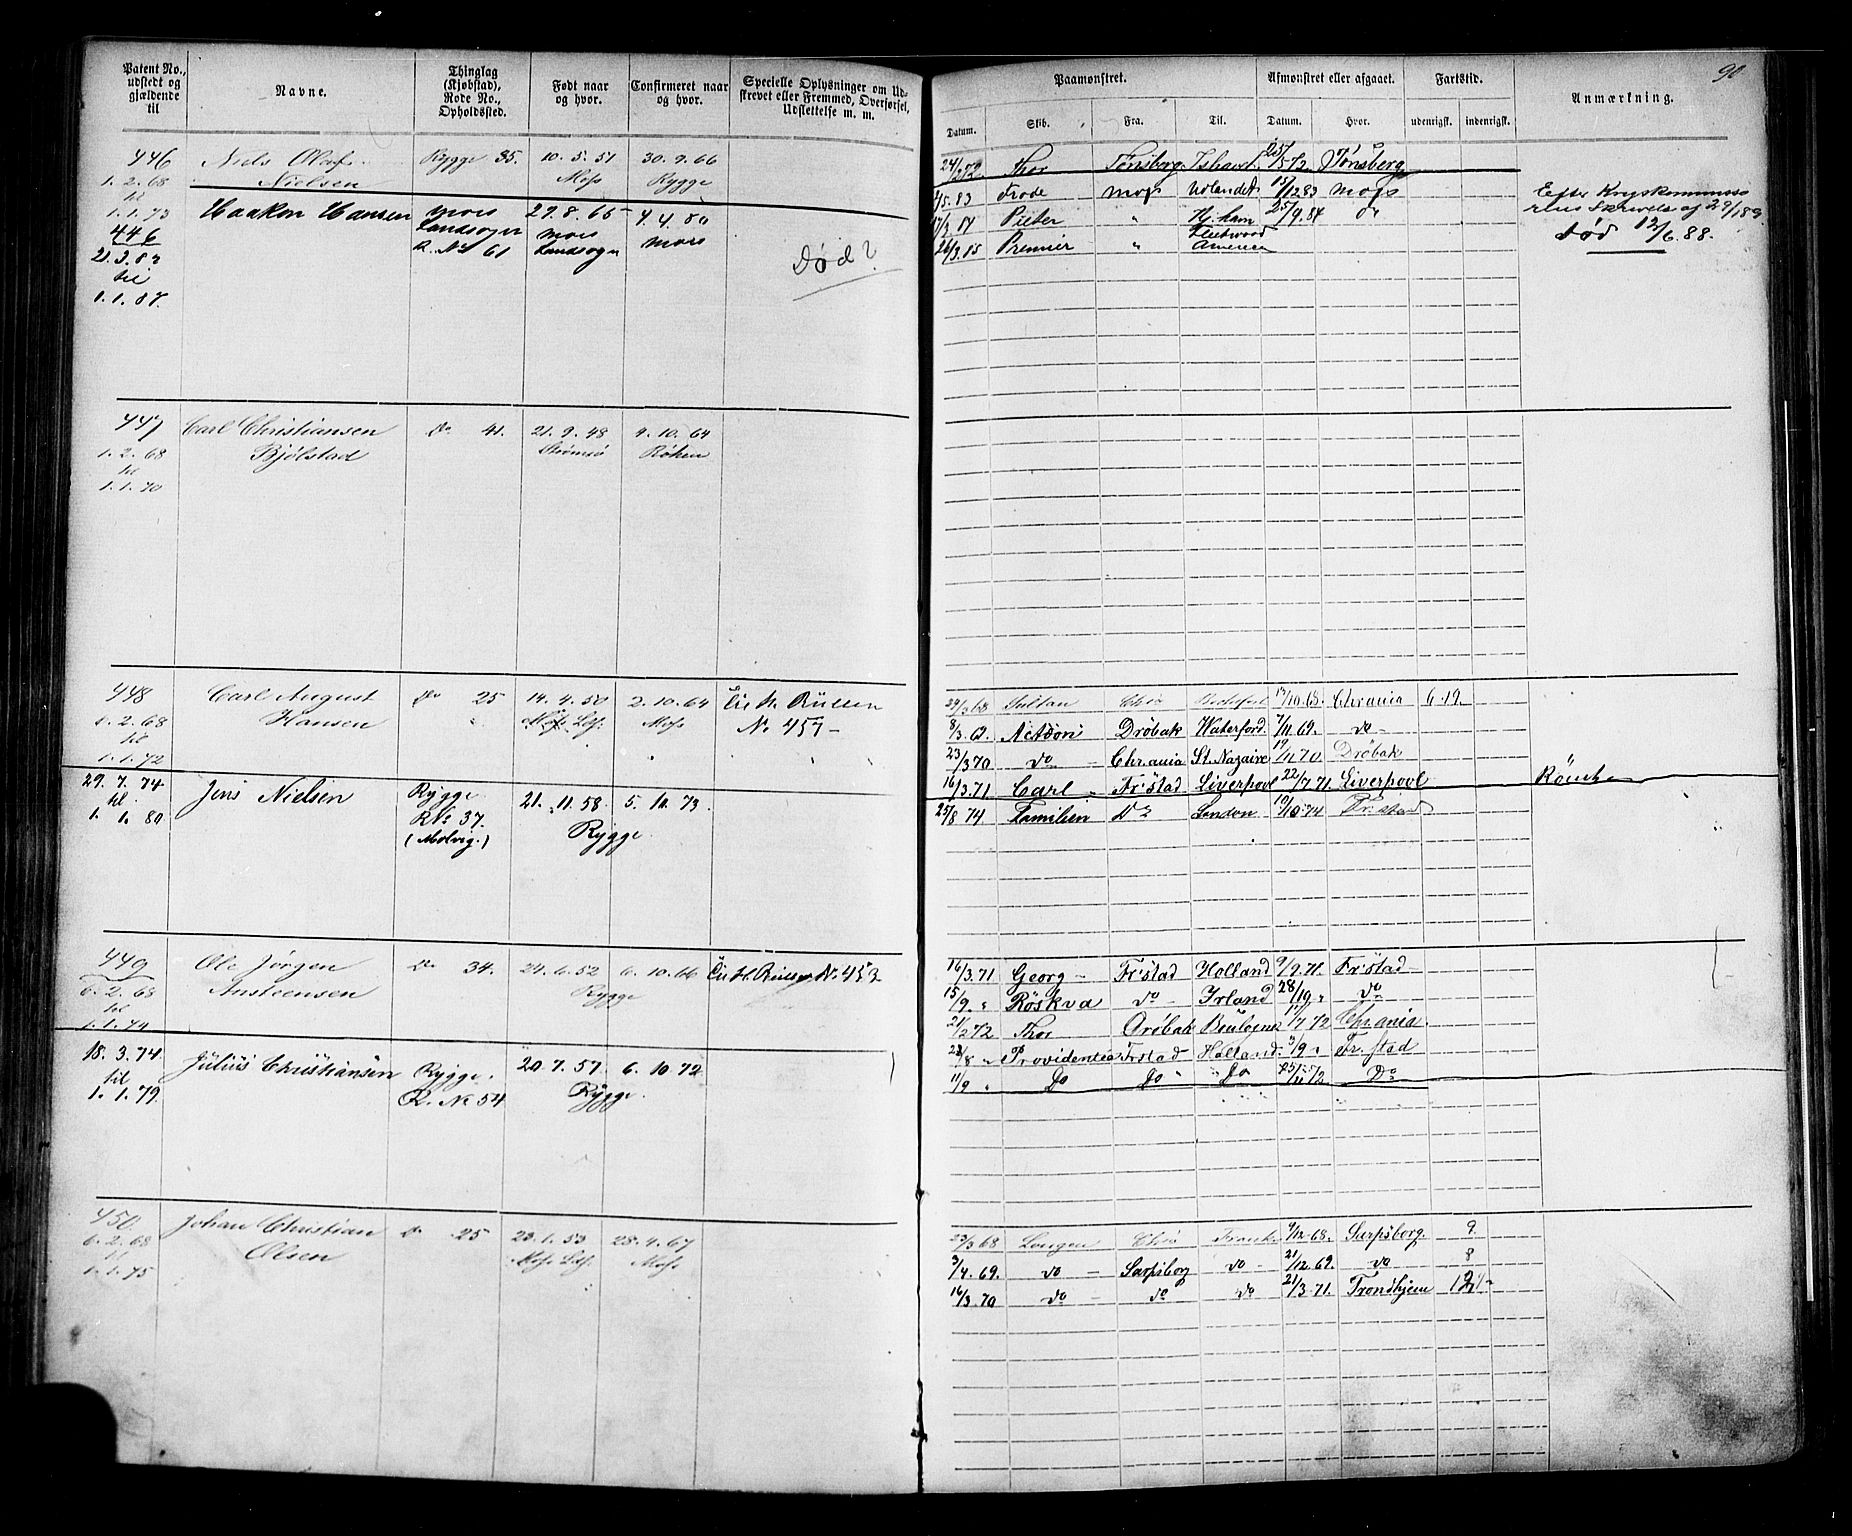 90
Patent No., udstedt og gjældende til
Navne.
Thinglag (Kjøbstad), Rode No., Opholdssted.
Født naar og hvor.
Confirmeret naar og hvor.
Specielle Oplysninger om Udskrevet eller Fremmed, Overførsel, Udslettelse m. m.
Paamønstret.
Afmønstret eller afgaaet.
Fartstid.
Anmærkning.
Datum. Skib. Fra. Til. Datum. Hvor. udenrigsk. indenrigsk.
446 Niels Olaf Rygge 35. 10. 5. 51 30. 9. 66
1. 2. 68 Nielsen Moss Rygge
til
1. 1. 73 Haakon Hansen Moss 29. 8. 65 4. 4. 80
446 Landsogn Moss Moss
21. 3. 83 R. No 61 Landsogn Død?
til
1. 1. 87.
24/2 72 Thor Tønsberg Ishavet 25/5 72 Tønsberg
/5. 83 Frode Moss Udlandet 15/12 83 Moss
Pieter " 25/9. 84 do
26/3. 85 Premier " Fleetwood America
Død 12/6. 88.
447 Carl Christiansen Do 41. 21. 9. 48 9. 10. 64
1. 2. 68 Bjølstad Strømsø Røken
til
1. 1. 70
448 Carl August Do 25 14. 4. 50 2. 10. 64
1. 2. 68 Hansen Moss Lds. Moss No 457
til
1. 1. 72
29/3 68 Sultan 13/10. 68. Chrania 6. 19.
8/3. 69. Actæon Drøbak Waterford 7/11 69. do
23/3 70 do Chrania St. Nazaire 19/11 70 Drøbak
16/3. 71. Carl Fr:stad Liverpool 22/7. 71. Liverpool
29. 7. 74 Jens Nielsen Rygge 21. 11. 58. 5. 11. 73.
til R No 37. Rygge
1. 1. 80 (Molvig.)
25/8 74 Familien Do London 10/10 74 Fr:stad
449 Ole Jørgen Do 34. 24. 6. 52 6. 10. 66
6. 2. 68 Ansteensen Rygge
til
1. 1. 74
16/3. 71 Georg Fr:stad Holland 9/9. 71. Fr:stad
15/9. " Röskva do Irland 28/10. " do
21/2 72 Thor Drøbak Boulogne 17/7 72 Chrania
23/8 " Providentia Frstad Holland 3/9 " Fr. stad
11/9 " Do Do Do 25/11 72 Do
18. 3. 74. Julius Christiansen Rygge. 20. 7. 57 6. 10. 72
til R. No 54 Rygge.
1. 1. 79.
450 Johan Christian Do 25 23. 1. 53 28. 4. 67
6. 2. 68 Olsen Moss Lds. Moss
til
1. 1. 75
23/3 68 Lougen 9/12. 68. Sarpsborg. 9.
3/4. 69. do Sarpsborg do 21/12. 69. do 8
16/3. 70 do do do 21/3. 71. Trondhjem